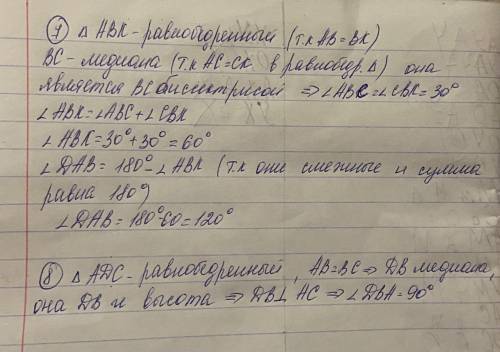 ⑦ △ ABK - равнобедренный (т.к AB = BK)
BC - медиана (т.к AC=CK в равнобедр. △) она
является BC биссектрисой ⇒ ∠ABC = ∠CBK = 30°
∠ABK = ∠ABC + ∠CBK
∠ABK = 30° + 30° = 60°
∠DAB = 180° - ∠ABK (т.к они смежные и сумма
равна 180°)
∠DAB = 180° - 60 = 120°
⑧ △ ADC - равнобедренный, AB = BC ⇒ DB медиана,
она DB и высота ⇒ DB ⊥ AC ⇒ ∠DBA = 90°